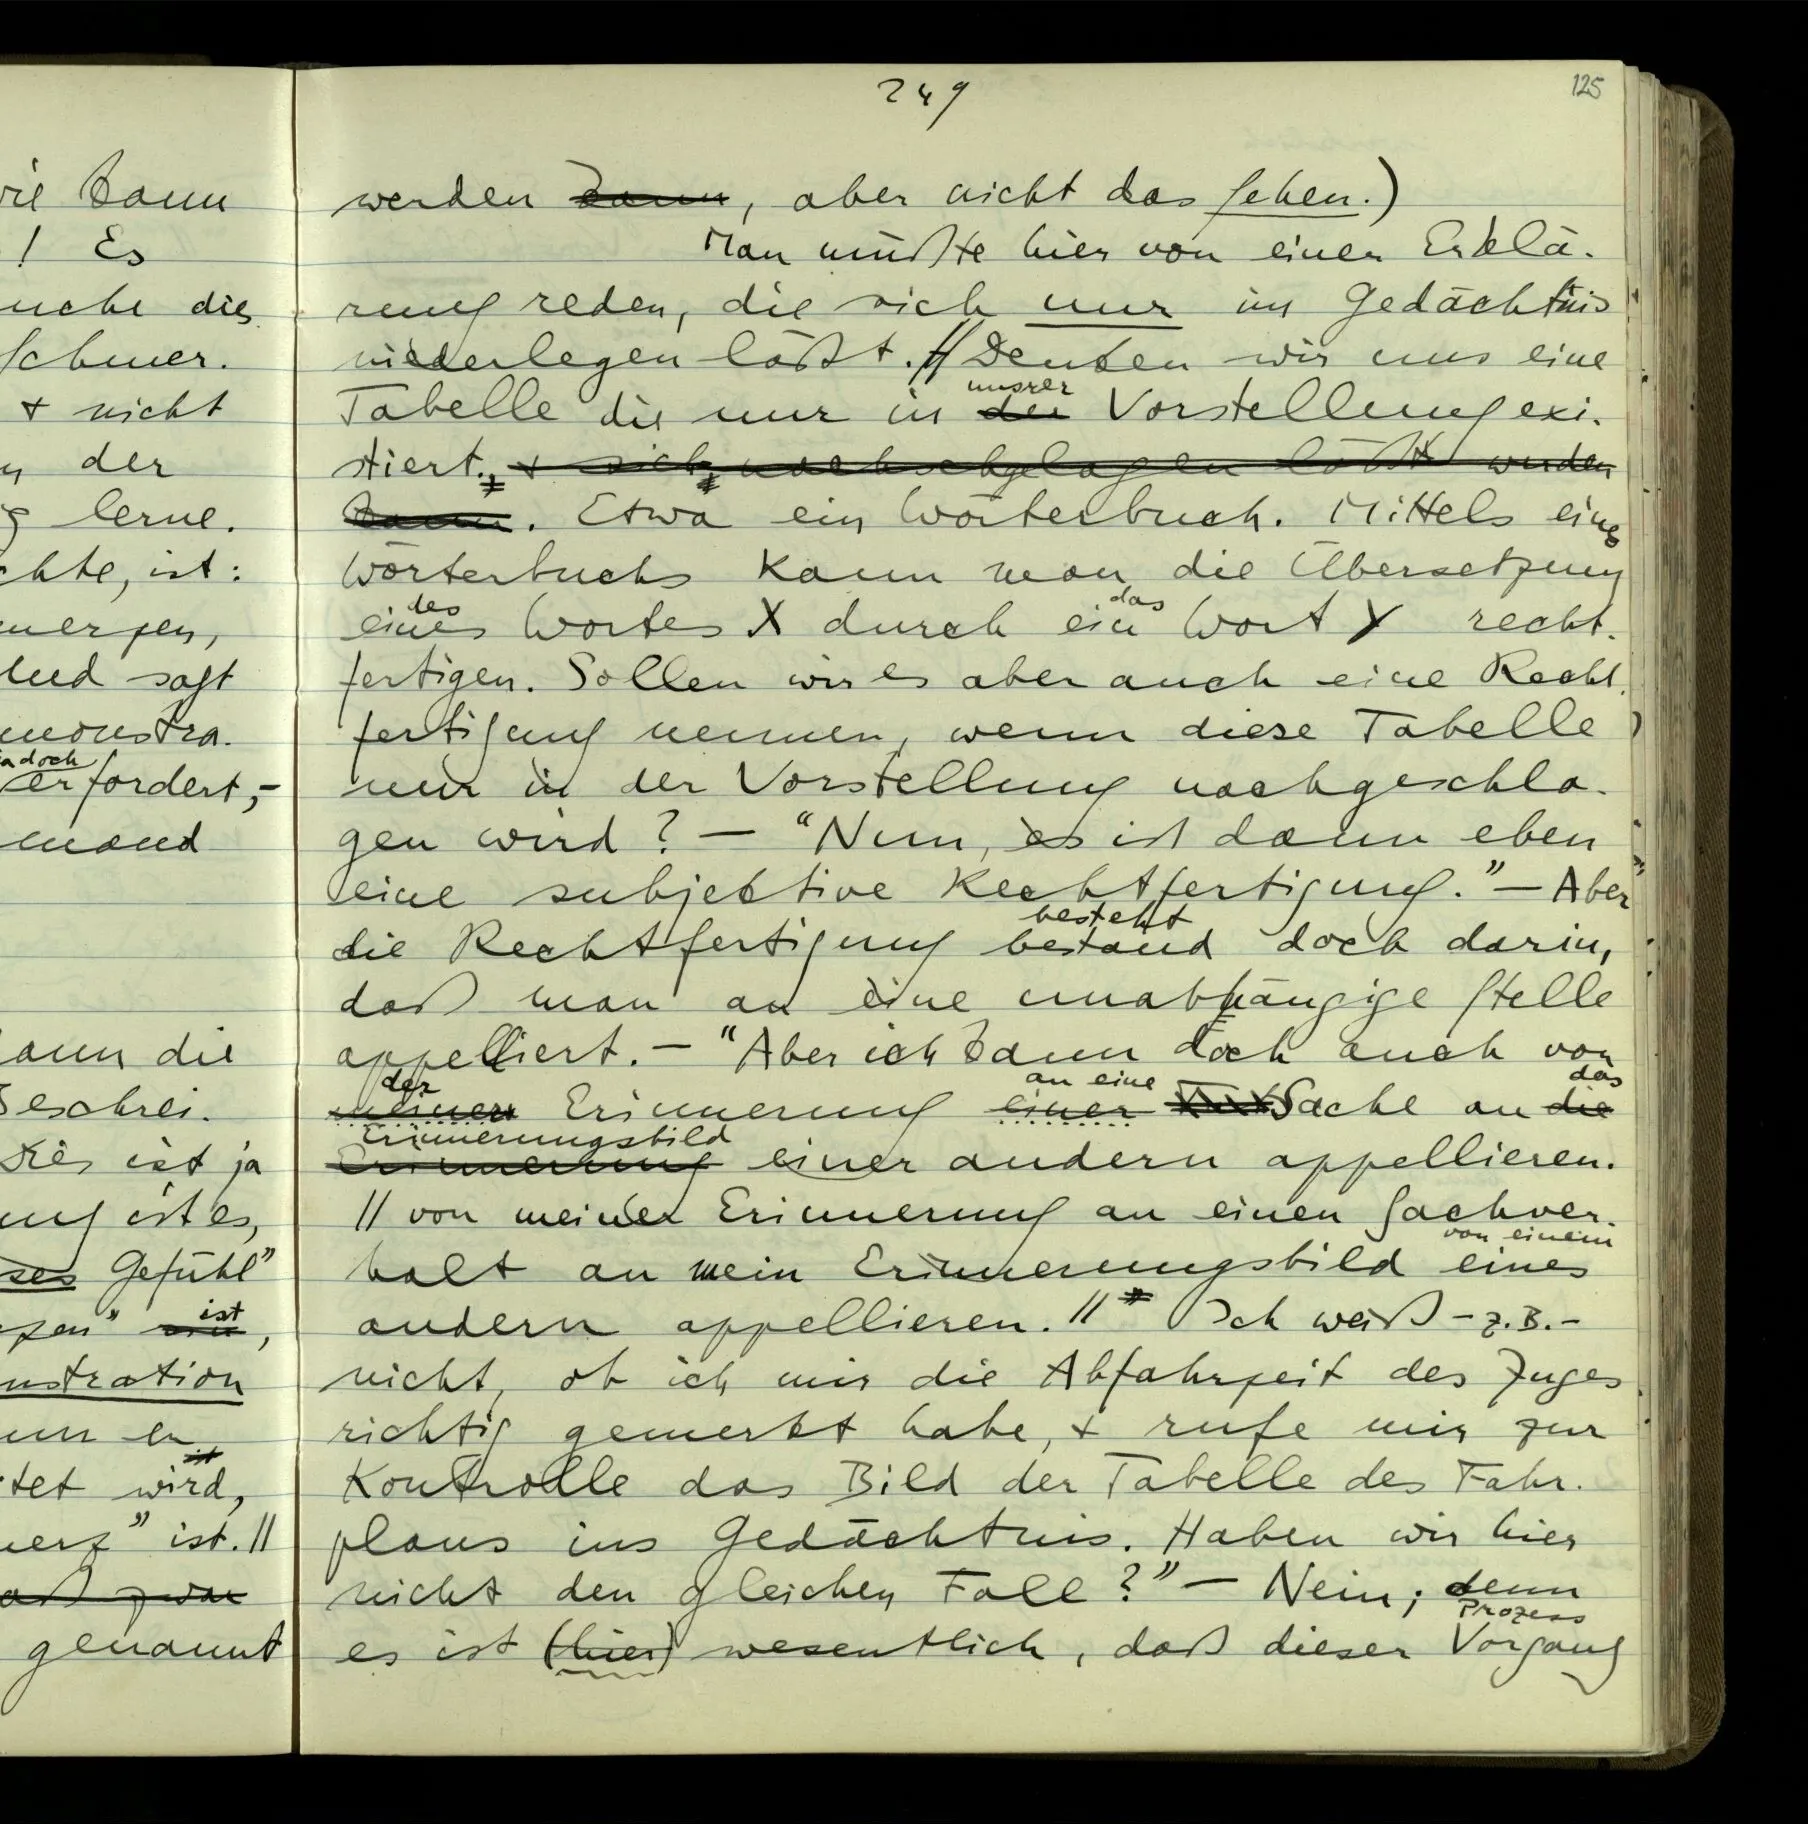 249
125
werden kann, aber nicht das Sehen.)
Man müßte hier von einer Erklä-
rung reden, die sich nur im Gedächtnis
niederlegen läßt. // Denken wir uns eine
unsrer
Tabelle die nur in der Vorstellung exi-
stiert., + sich, nachschgelagen läßt werden
kann. Etwa ein Wörterbuch. Mittels eines
Wörterbuchs kann man die Übersetzung
des das
eines Wortes X durch ein Wort Y recht-
fertigen. Sollen wir es aber auch eine Recht-
fertigung nennen, wenn diese Tabelle
nur in der Vorstellung nachgeschla-
gen wird? — "Nun, es ist dann eben
eine subjektive Rechtfertigung." — Aber
besteht
die Rechtfertigung bestand doch darin,
daß man an eine unabhängige Stelle
appelliert. — "Aber ich kann doch auch von
der an eine das
meiner Erinnerung einer Sache an die
Erinnerungsbild
Erinnerung einer andern appellieren.
// von meiner Erinnerung an einen Sachver-
von einem
halt an mein Erinnerungsbild eines
andern appellieren. // Ich weiß – z.B. –
nicht, ob ich mir die Abfahrzeit des Zuges
richtig gemerkt habe, + rufe mir zur
Kontrolle das Bild der Tabelle des Fahr-
plans ins Gedächtnis. Haben wir hier
nicht den gleichen Fall?" — Nein; denn
Prozess
es ist (hier) wesentlich, daß dieser Vorgang
kann
! Es
dies
Schmer-
+ nicht
der
lerne.
ist:
sagt
jadoch
erfordert, –
die
ist ja
ist es,
Gefühl"
ist
ist
wird,
" ist. //
zwar
genannt